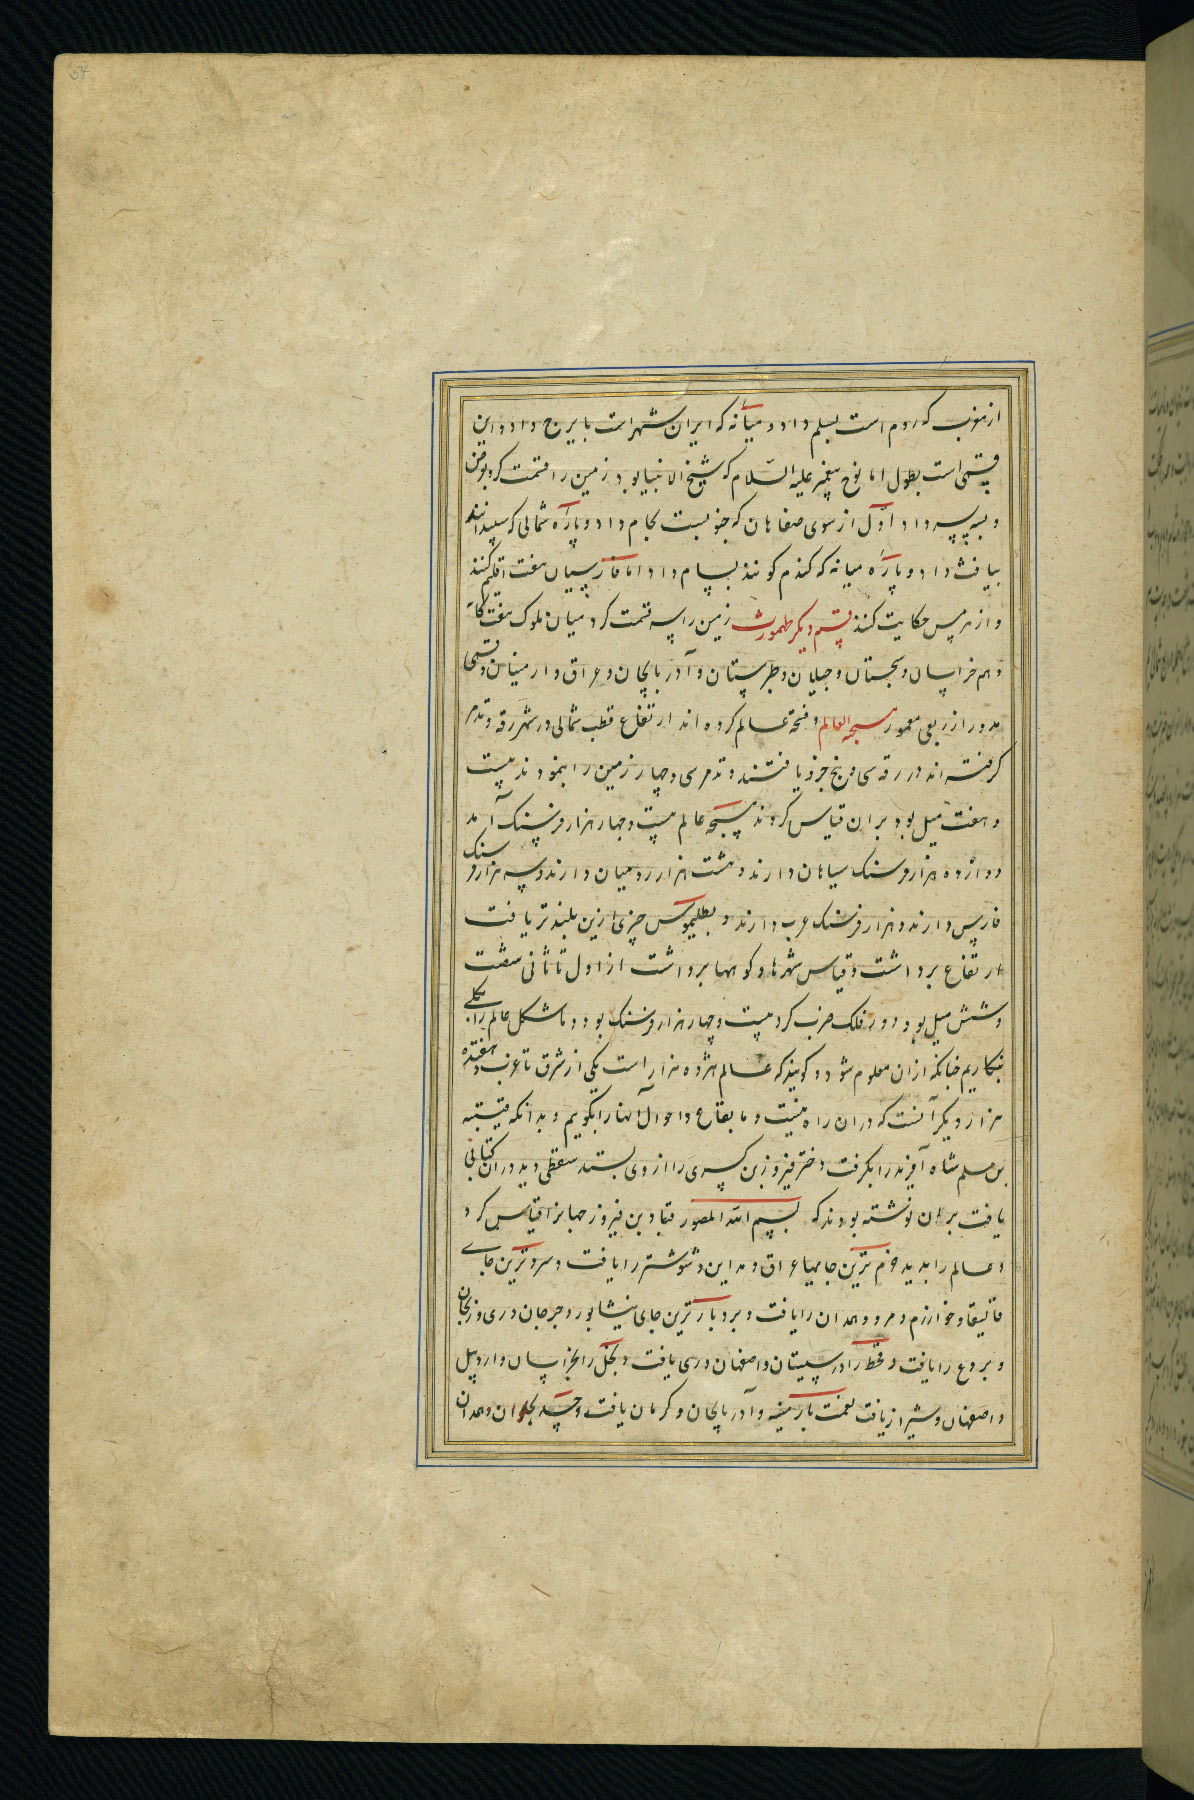 از مغرب که روم است بسلم داد و میانه که ایران شهر است بایرج داد و این
قسمی است بطول اما نوح پیغمبر علیه السلام که شیخ الانبیا بود زمین را قسمت کرد بعرض
و بسه پسر داد اول از سوی صفاهان که جنوبست بحام داد و پاره شمالی که سپید
بیافث داد و پاره میانه که گندم گونند بسام داد اما فارسیان هفت اقلیم کنند
و از هرمس حکایت کنند قسم دیگر طهمورث زمین را سه قسمت کرد میان ملوک هفت گانه
و هم خراسان و سجستان و جیلان و طبرستان و آذربایجان و عراق و ارمینیان و قسمی
مدور از ربعی معمور مسیحه العالم و فتحه عالم کرده اند ارتفاع قطب شمالی در شهر رقه و تدمر
گرفته اند در رقه سی و پنج جزو یافتند و تدمر سی و چهار زمین را بپیمودند بیست
و هفت میل بود بران قیاس کردند مسیحه عالم بیست و چهار هزار فرسنگ آمد
دوازده هزار فرسنک سیاهان دارند و هشت هزار رومیان دارند و سه هزار فرسنک
فارس دارند و هزار فرسنک عرب دارند و بطلیموس چیزی ازین بلندتر یافت
ارتفاع برداشت و قیاس شهرها و کوهها برداشت از اول تا ثانی شصت
و شش میل بود و دور فلک ضرب کرد بیست و چهار هزار فرسنک بود و ما شکل عالم را بکلی
بنکاریم چنانکه ازان معلوم شود و گویند که عالم هژده هزار است یکی از مشرق تا مغرب و هفده
هزار دیگر آنست که دران راه نیست و ما بقاع و احوال آنها را بگویم و بدانکه قتیبه
بن مسلم شاه آفرند را بگرفت دختر فیروز بن کسری را از وی بستد سفطی دید دران کتابی
یافت بران نوشته بودند که بسم الله المصور قباد بن فیروز جهانرا قیاس کرد
و عالم را بدید خرم ترین جایها عراق و مداین و شوشتر را یافت و سردترین جای
قالیقا و خوارزم و مرو و همدان را یافت و بردبارترین جای نیشابور و جرجان و ری و زنجان
و بردع را یافت و قحط را در سیستان و اصفهان و ری یافت و بخل را بخراسان و اردبیل
و اصفهان و شیراز یافت نعمت بارمنیه و آذربایجان و کرمان یافت و حسد بحلوان و همدان